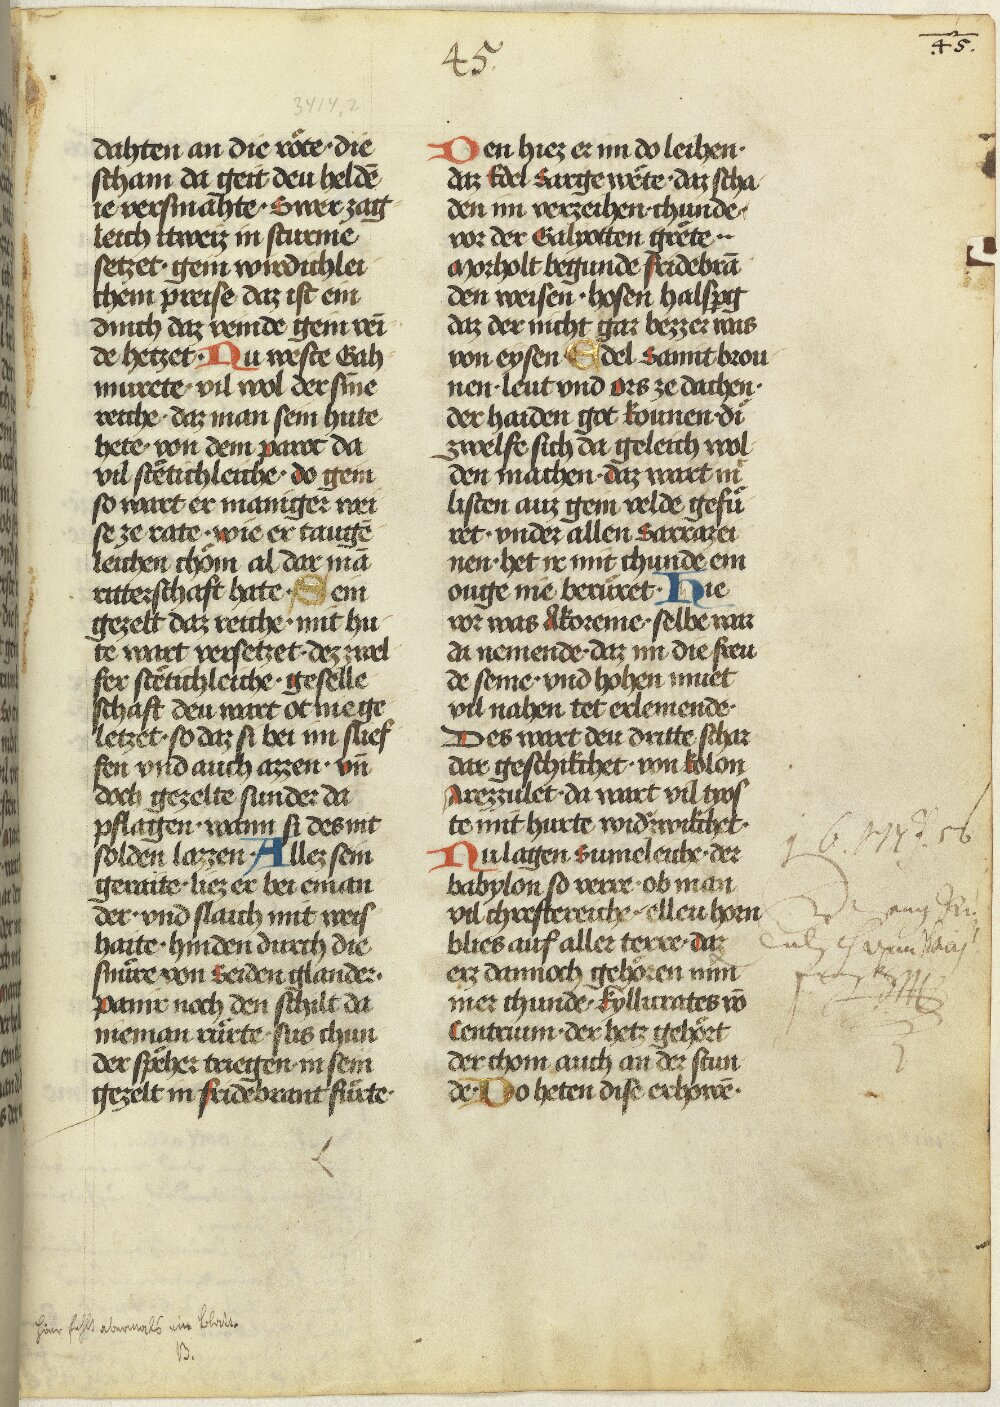 45.
45.
3414,2
dahten an die röte · die
scham da geit deu heldē
ie versmahte · Swer zag
leich itweiz in sturme
setzet · gein wirdichlei
chem preise daz ist ein
dinch daz veinde gein vei
de hetzet · Nu weste Gah
murete · vil wol der sine
reiche · daz man sein hute
hete · von dem paroc da
vil stetichleiche · do gein
so wart er maniger wei
se ze rate · wie er taugē
leichen chöm al dar mā
ritterschaft hate · Sein
gezelt daz reiche · mit hu
te wart versetzet · dez zwel
fer stetichleiche · geselle
schaft deu wart ot nie ge
letzet · so daz si bei im slief
fen vnd auch azzen · vn̄
doch gezelte sunder da
pflagen · wann si des nit
solden lazzen · Allez sein
geraite · liez er bei einan
der · vnd slaich mit weis
haite · hinden durch die
snüre von Seiden glander ·
panir noch den schilt da
nieman rürte · sus chun
der speher triegen · in sein
gezelt in fridebrant fürte ·
Den hiez er im do leihen ·
daz Edel Sarge wete · daz scha
den im verzeihen · chunde ·
vor der Galyotten grete ··
Morholt begunde fridebrā
den weisen · hosen halspg
daz der nicht gar bezzer was
von eysen · Edel Samit brou
nen · leut vnd ors ze dachen ·
der haiden got kounen · di
zwelfe sich da geleich wol
den machen · daz wart in
listen auz gein velde gefü
ret · vnder allen Sarrazei
nen · het ir mit chunde ein
ouge nie berüret · Hie
vor was Akoreine · selbe war
da nemende · daz im die freu
de seine · vnd hohen muet
vil nahen tet erlemende ·
Des wart deu dritte schar
dar geschikchet · von kolon
Arezzulet · da wart vil tyos
te mit hurte widerwikchet ·
Nu lagen Sumeleiche · der
babylon so verre · ob man
vil chrestereiche · ellen horn
blies auf aller terre · daz
erz dannoch gehören nim
mer chunde · kyllicrates vō
Centrium · der hetz gehört
der chom auch an der stun
de · Do heten dise erhowē ·
hier fehlt abermals ein blatt.